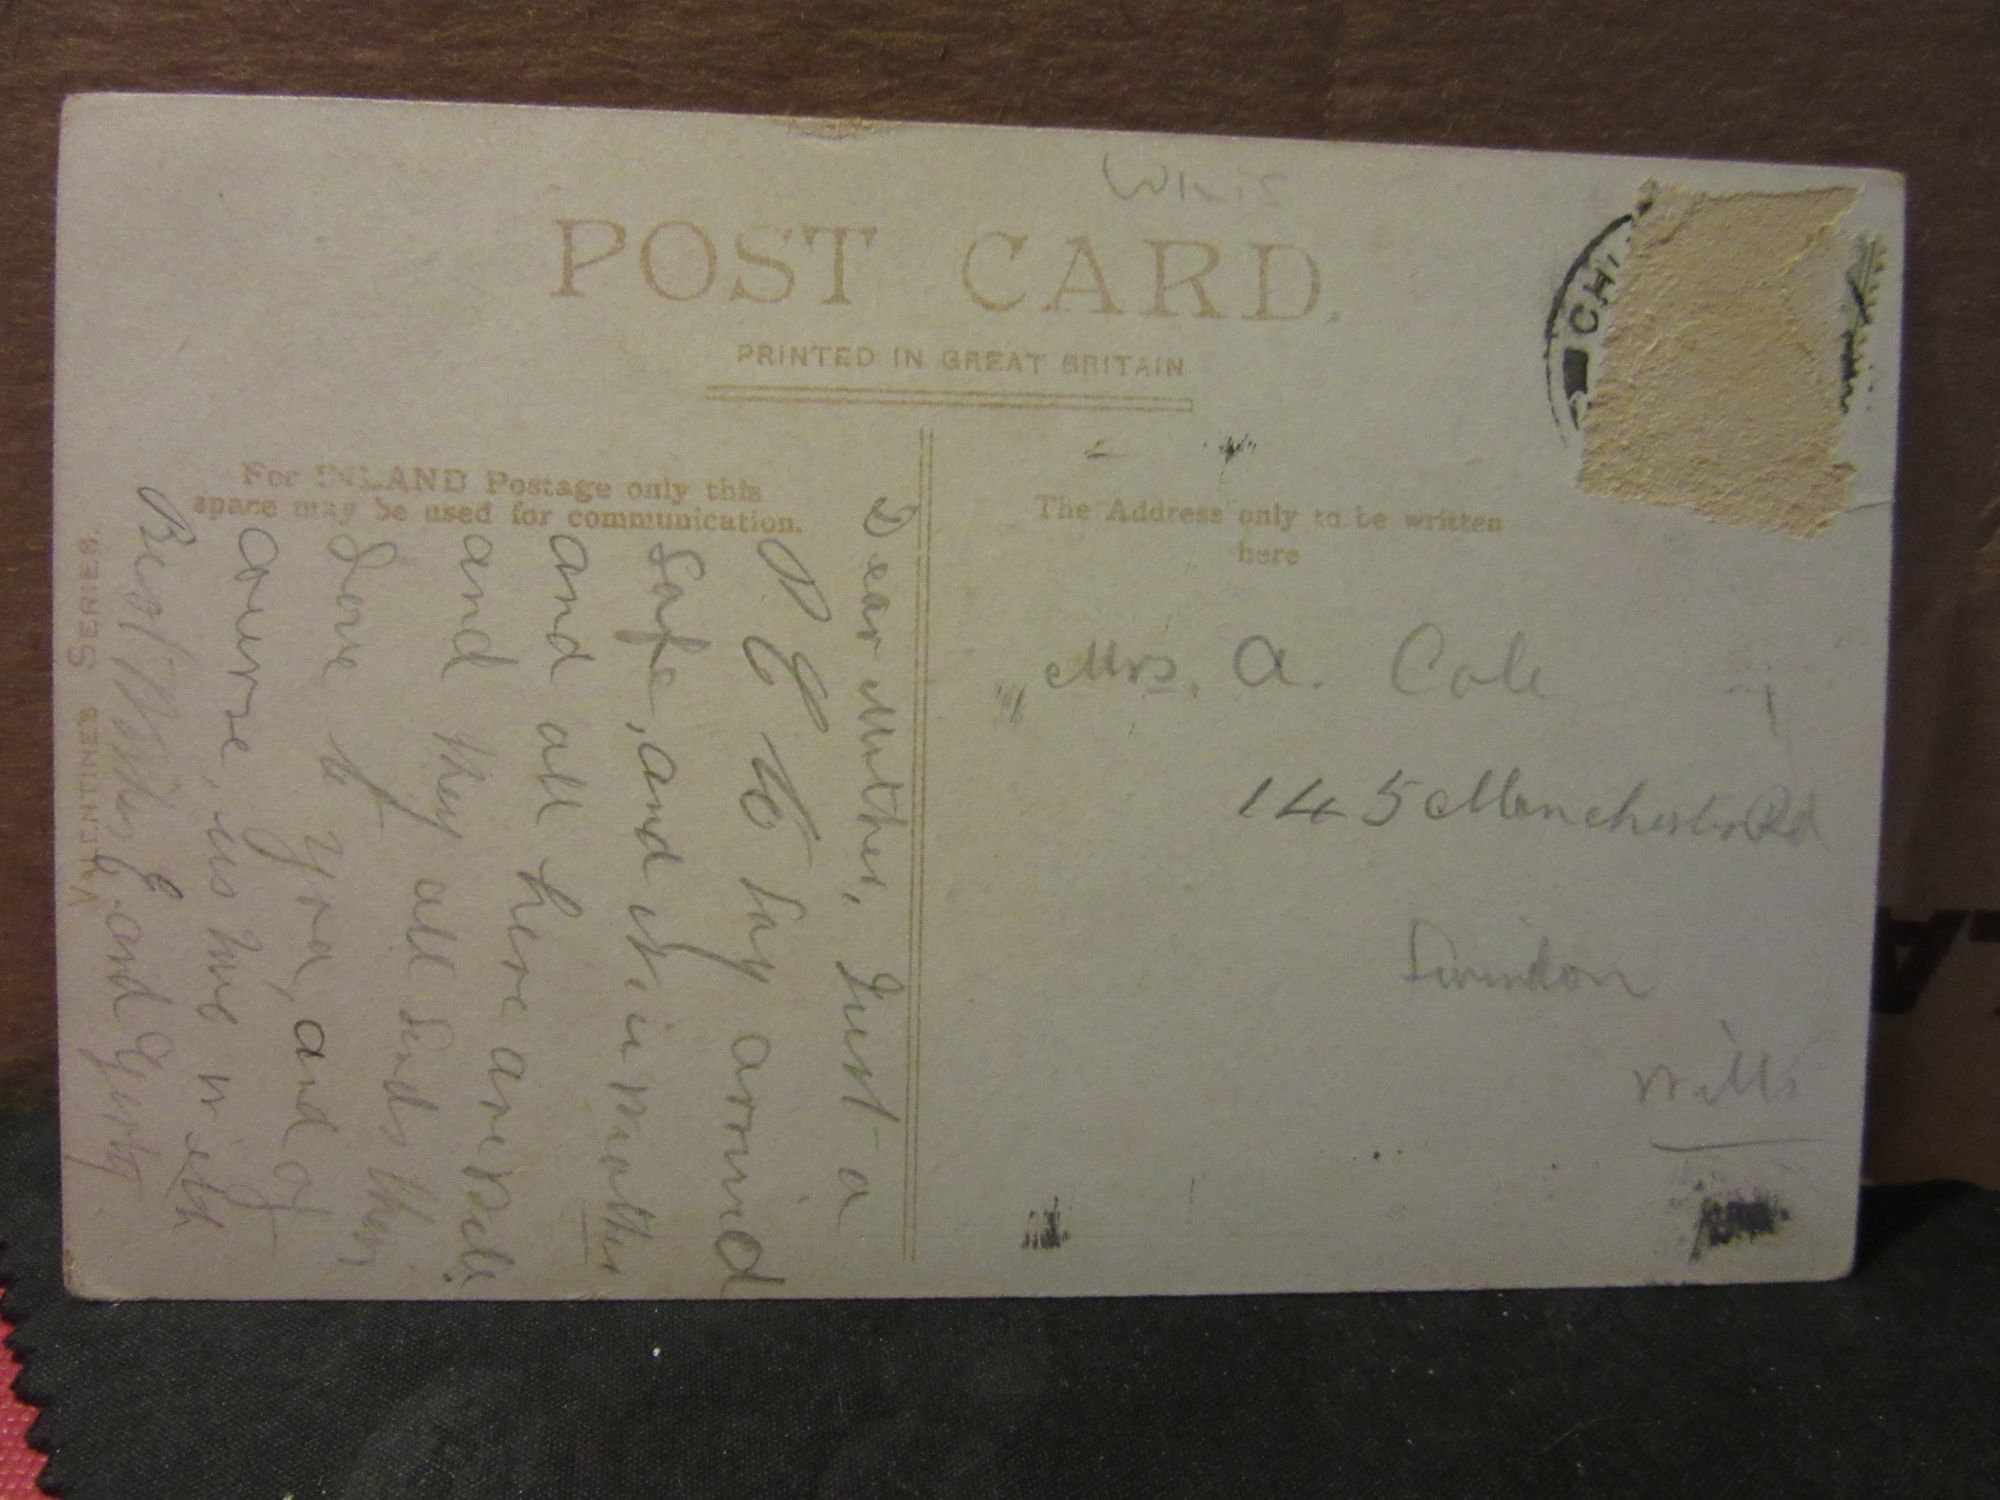 POST CARD.
PRINTED IN GREAT BRITAIN
For INLAND Postage only this
space may be used for communication.
The Address only to be written
here
VALENTINES SERIES.
CHI
Dear Mother, Just a
P C to say arrived
safe, and
and all here are
and they all sends their
Love to you, and of
course, us two with
Best Wishes E and
Mrs. A. Cole
145 Manchester Rd
Swindon
Wilts